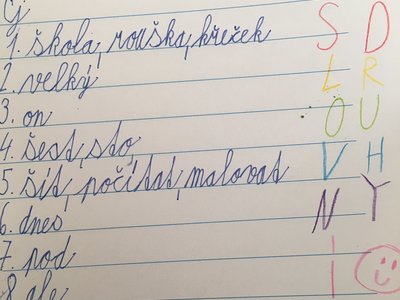 1. škola, rouška, křeček
2. velký
3. on
4. šest, sto,
5. šít, počítat, malovat
6. dnes
7. pod
8. ale
S D
L R
O U
V H
N Y
I